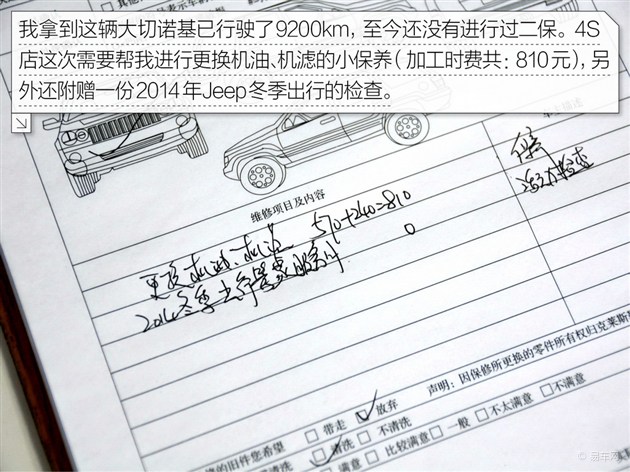 我拿到这辆大切诺基已行驶了9200km，至今还没有进行过二保。4S
店这次需要帮我进行更换机油、机滤的小保养（加工时费共：810元），另
外还附赠一份2014年Jeep冬季出行的检查。
维修项目及内容
更换机油、机滤 570+240=810
2014冬季出行 0
声明：因保修所更换的零件所有权归克莱斯
修的旧件您希望 带走 放弃
清洗 不清洗
满意 比较满意 一般 不太满意 不满意